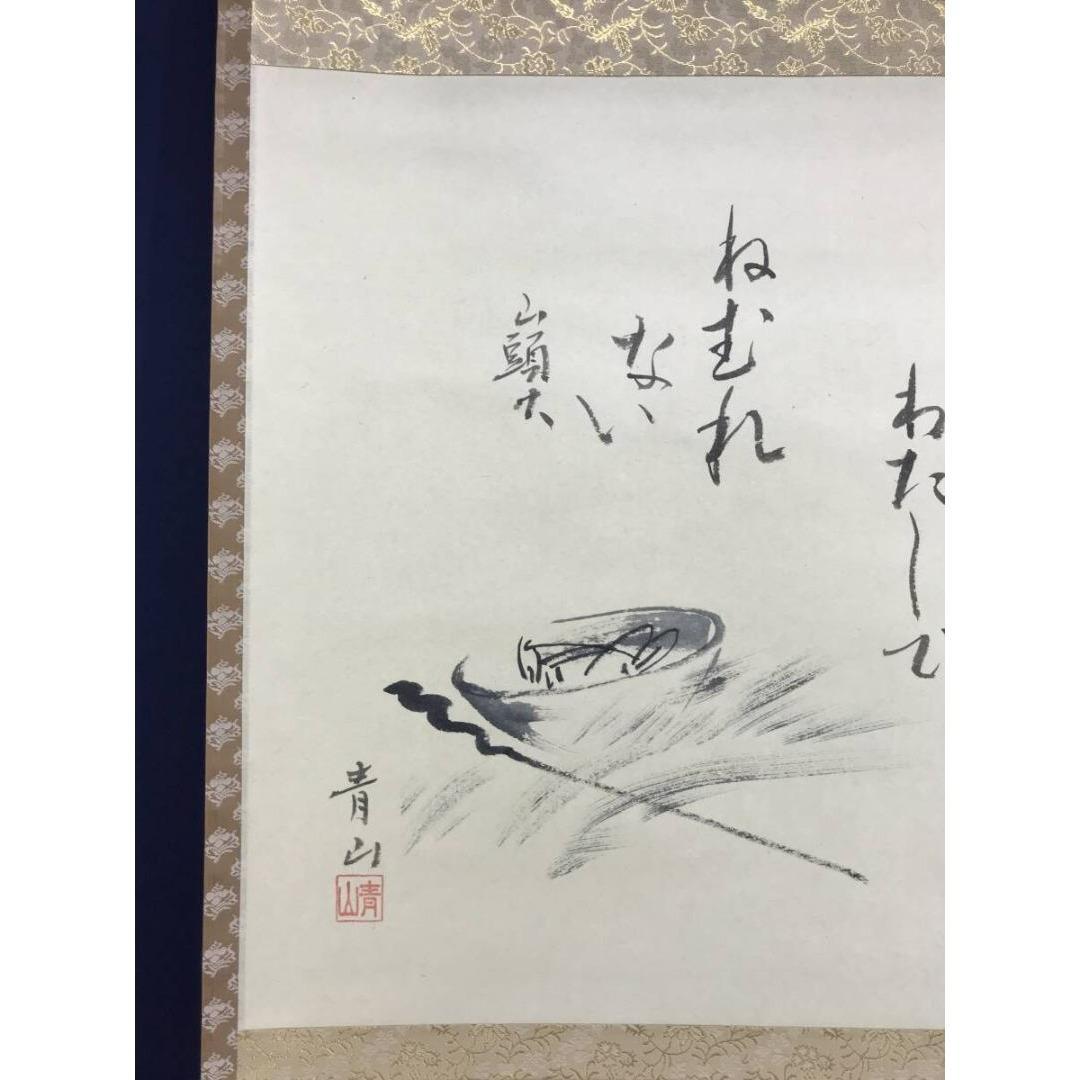 わたして
ねむれ
ない
山頭火
青山
青山